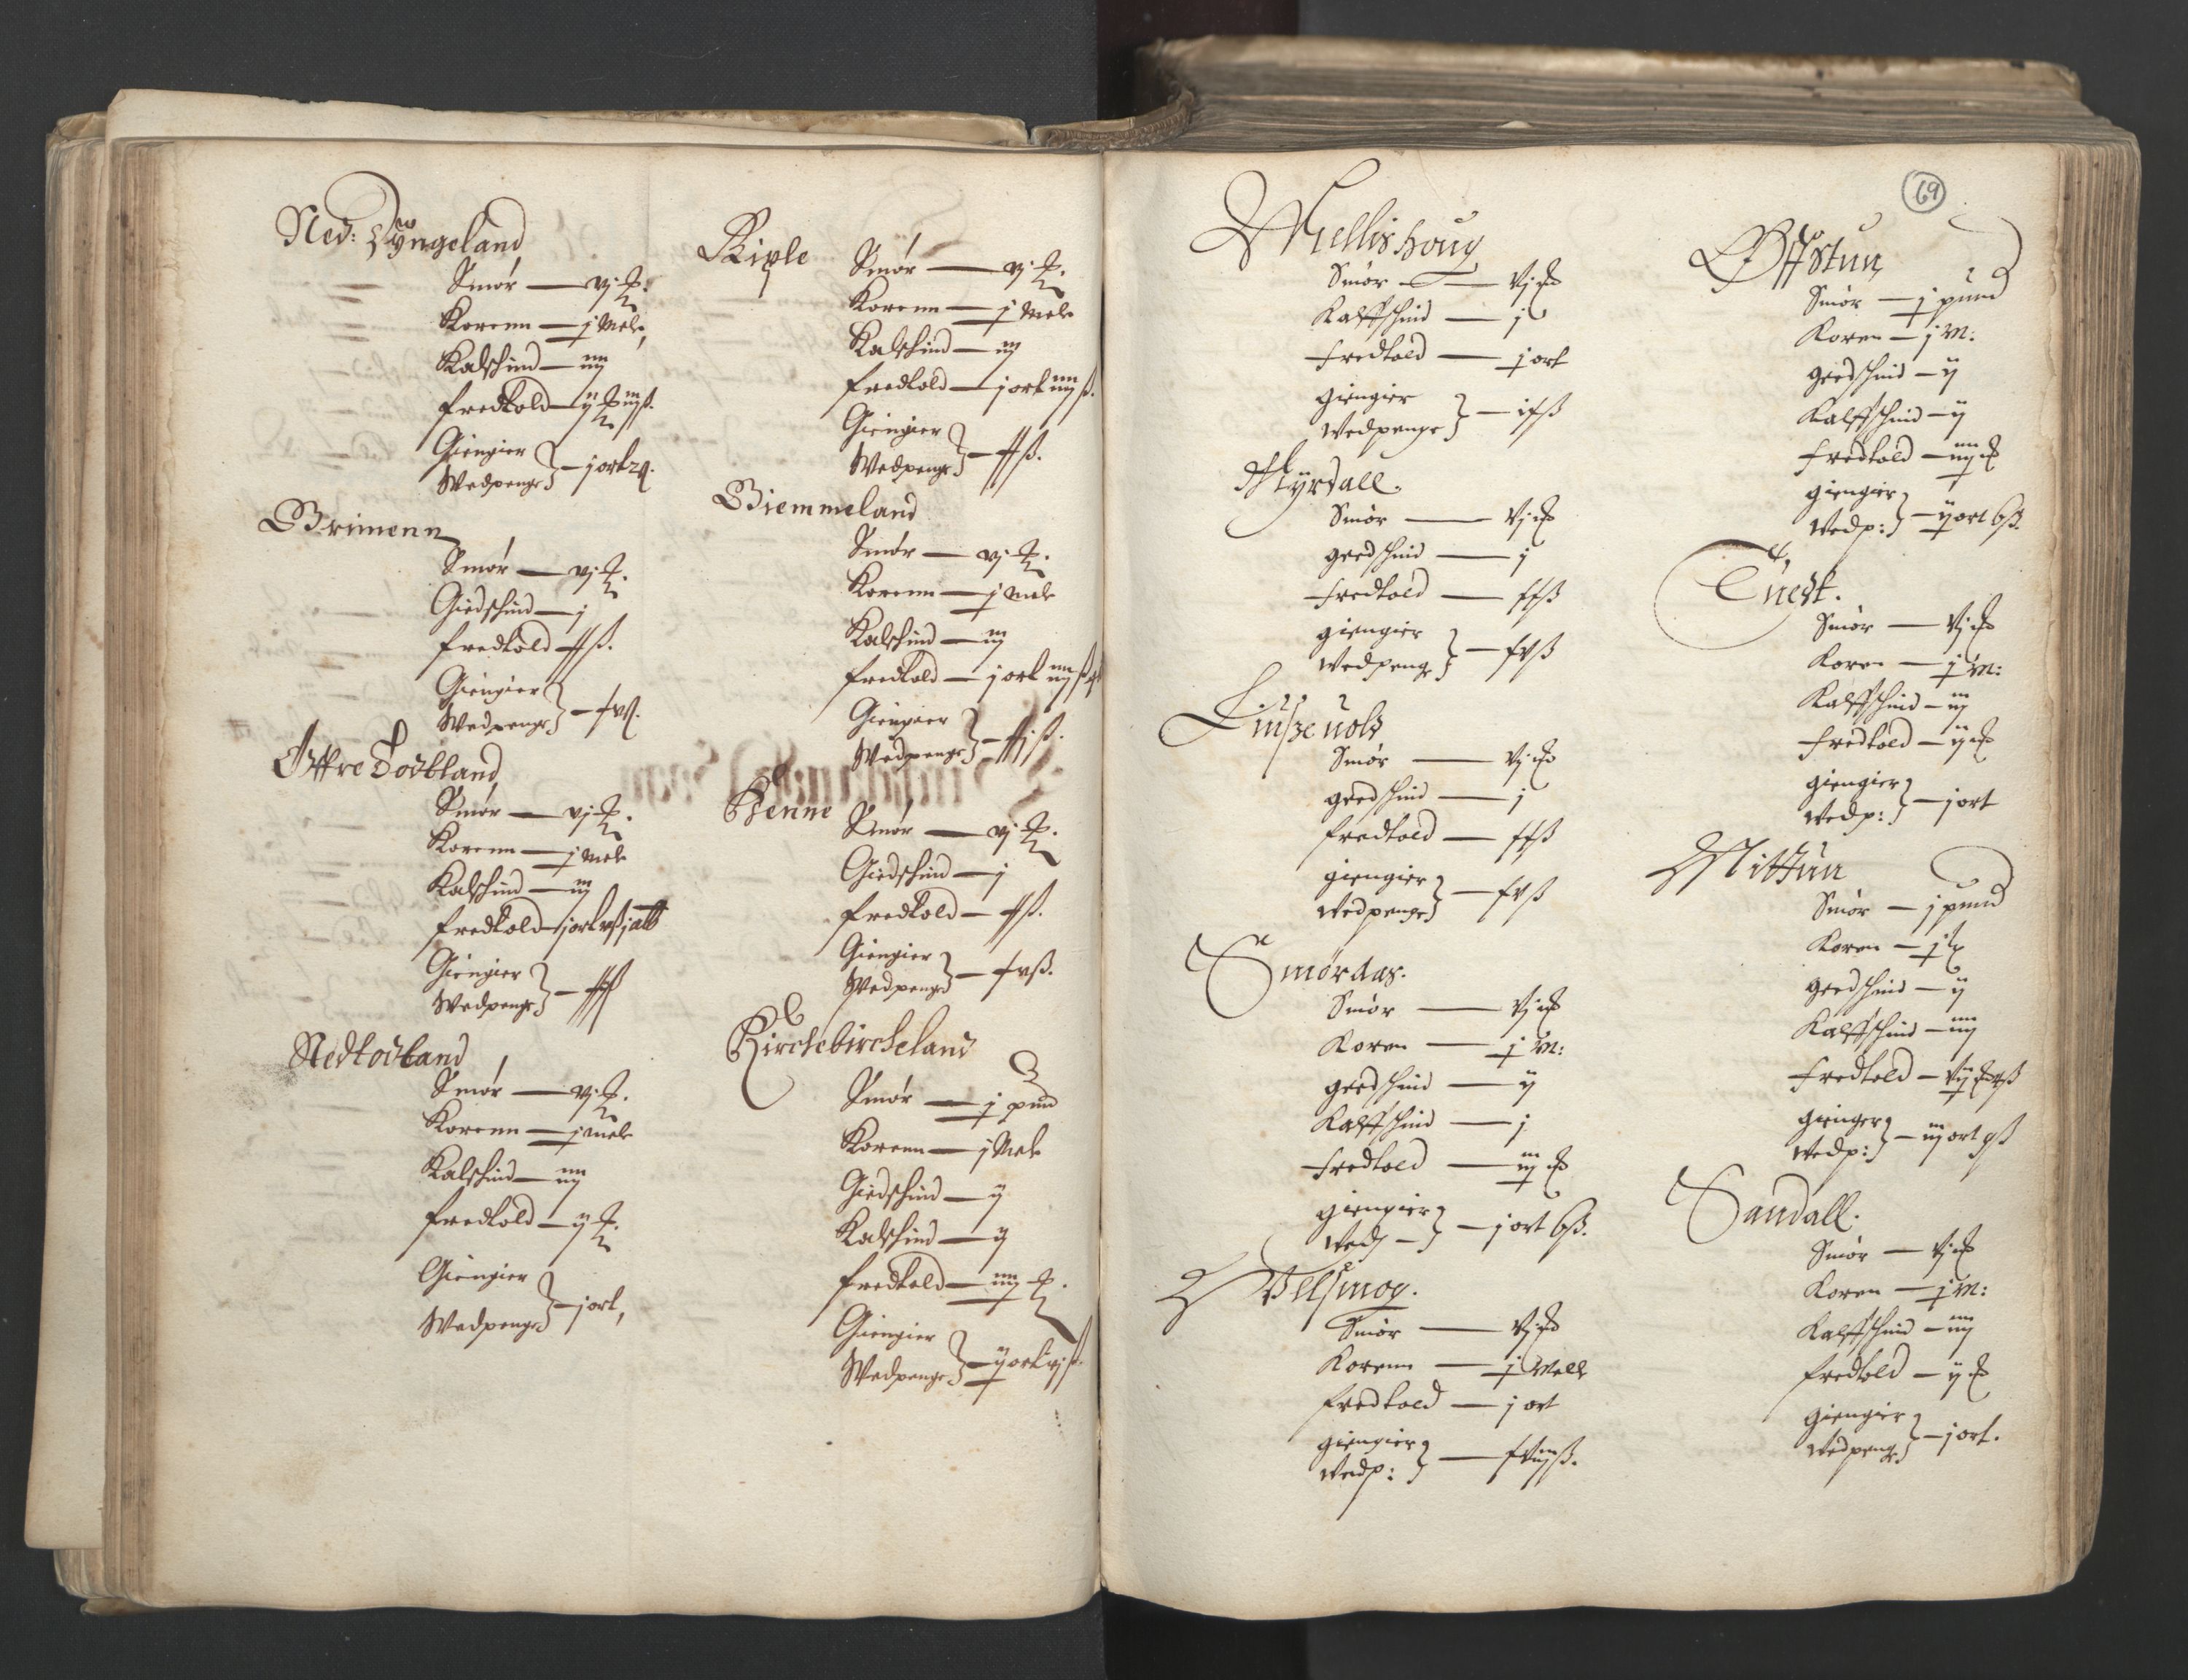 Ned: Tyngeland
Smør — vj ℔.
Korenn — j Mele,
Kalschind — iiij
fredtold — ij ℔ iiij ß.
Giengier
Wedpenge } — j ort
Grimenn
Smør — vj ℔.
Giedschind — j
fredtold — ß.
Giengier
Wedpenge } — ß.
Øffre Todtland
Smør — vj ℔.
Korenn — j Mele
Kalschind — iij
fredtold — j ort
Giengier
Wedpenge } —
Nedtodtland
Smør — vj ℔.
Korenn — j mele
Kalschind — iiij
fredtold — ij ℔.
Giengier
Wedpenge } — j ort,
Riple
Smør — vj ℔.
Korenn — j Mele
Kalschind — iij
fredtold — j ort iiij ß.
Giengier
Wedpenge } — ß.
Giemmeland
Smør — vj ℔.
Korenn — j mele
Kalschind — iij
fredtold — j ort iiij ß
Giengier
Wedpenge } — ß.
Benne
Smør — vj ℔.
Giedschind — j
fredtold — ß.
Giengier
Wedpenge } — ß.
Kirckebirckeland
Smør — j pund
Korenn — j Mele
Giedschind — ij
Kalschind — ij
fredtold — iiij ℔.
Giengier
Wedpenge } — ij ort vj ß.
69
Miellishoug
Smør — vj ℔
Kalffschind — j
fredtold — j ort
giengier
Wedpenge } — ß
Myrdall.
Smør — vj ℔
geedschind — j
fredtold — ß
giengier
Wedpeng } — ß
Smør — vj ℔
geedschind — j
fredtold — ß
giengier
Wedpenge } — ß
Smørdas.
Smør — vj ℔
Koren — j m:
geedschind — ij
Kalffschind — j
fredtold — iij ℔
giengier
Wedp } — j ort 6 ß.
Smør — vj ℔
Korenn — j mell
fredtold — j ort
giengier
Wedp: } — ß.
Øffstun
Smør — j pund
Koren — j m:
geedschind — ij
Kalffschind — ij
fredtold — iiij ℔
giengier
Wedp: } — ij ort 6 ß.
Tuedt.
Smør — vj ℔
Koren — j m:
Kalffschind — iij
fredtold — ij ℔
giengier
Wedp: } — j ort
Mittun
Smør — j pund
Koren — j
geedschind — ij
Kalffschind — iiij
fredtold —
gienger
Wedp: } — iij ort 9 ß
Sandall.
Smør — vj ℔
Koren — j m:
Kalffschind — iiij
fredtold — ij ℔
giengier
Wedpeng } — j ort.